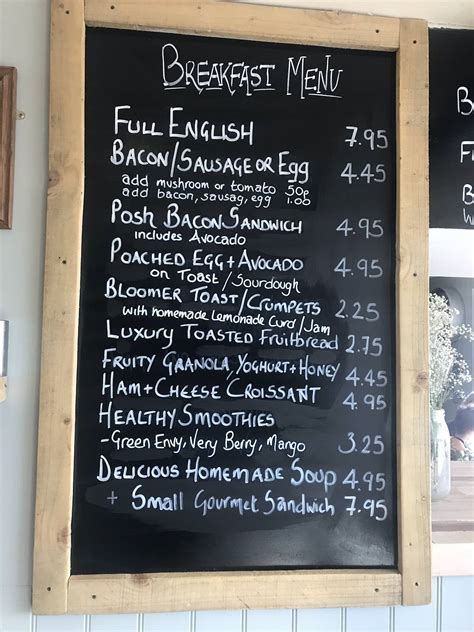 BREAKFAST MENU
FULL ENGLISH 7.95
BACON/SAUSAGE OR EGG 4.45
add mushroom or tomato 50p
add bacon, sausag, egg 1.00
POSH BACON SANDWICH 4.95
includes Avocado
POACHED EGG + AVOCADO 4.95
on Toast/Sourdough
BLOOMER TOAST/CRUMPETS 2.25
with homemade Lemonade Curd/Jam
LUXURY TOASTED Fruitbread 2.75
FRUITY GRANOLA, YOGHURT + HONEY 4.45
HAM + CHEESE CROISSANT 4.95
HEALTHY SMOOTHIES
- Green Envy, Very Berry, Mango 3.25
DELICIOUS HOMEMADE SOUP 4.95
+ Small Gourmet Sandwich 7.95